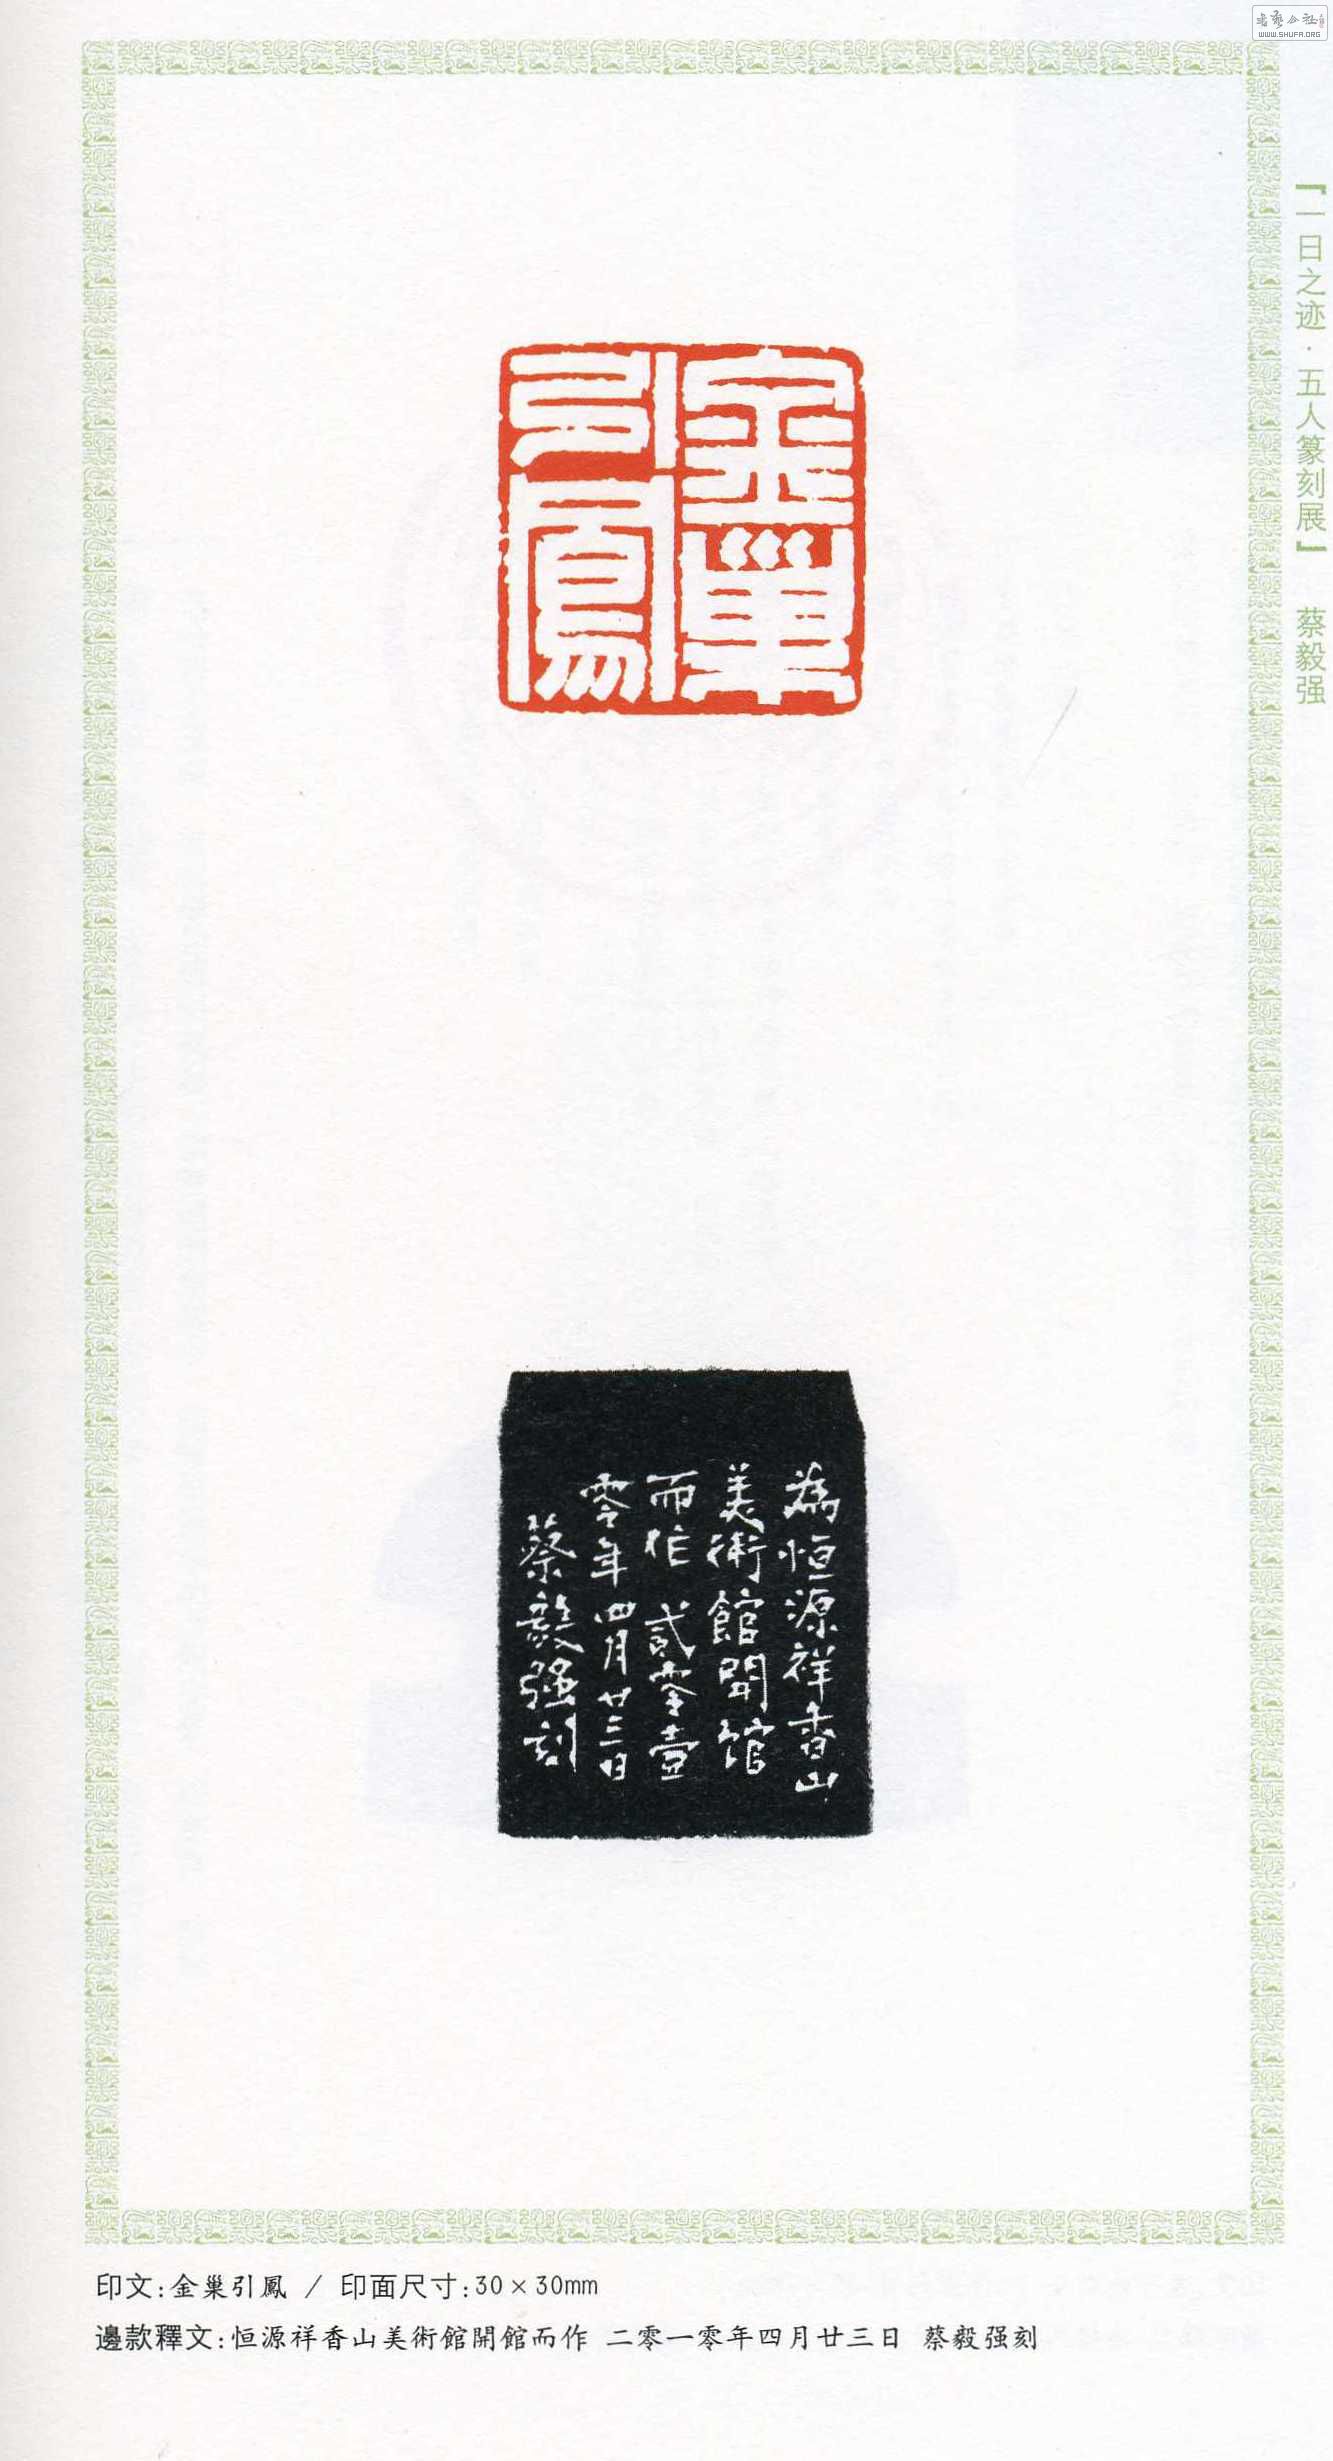 書藝公社
WWW.SHUFA.ORG
「一日之迹·五人篆刻展」 蔡毅强
金巢
引鳳
為恒源祥香山
美術館開館
而作 貳零壹
零年四月廿三日
蔡毅强刻
印文:金巢引鳳 / 印面尺寸:30×30mm
邊款釋文:恒源祥香山美術館開館而作 二零一零年四月廿三日 蔡毅强刻